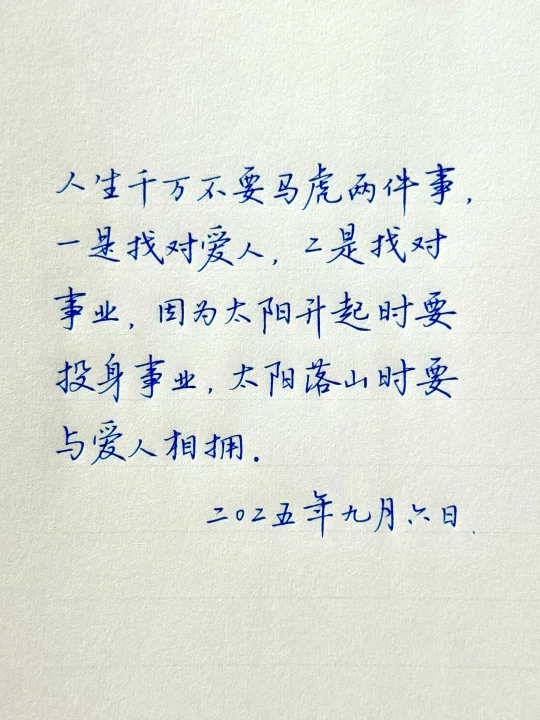 人生千万不要马虎两件事，
一是找对爱人，二是找对
事业，因为太阳升起时要
投身事业，太阳落山时要
与爱人相拥．
二〇二五年九月六日．